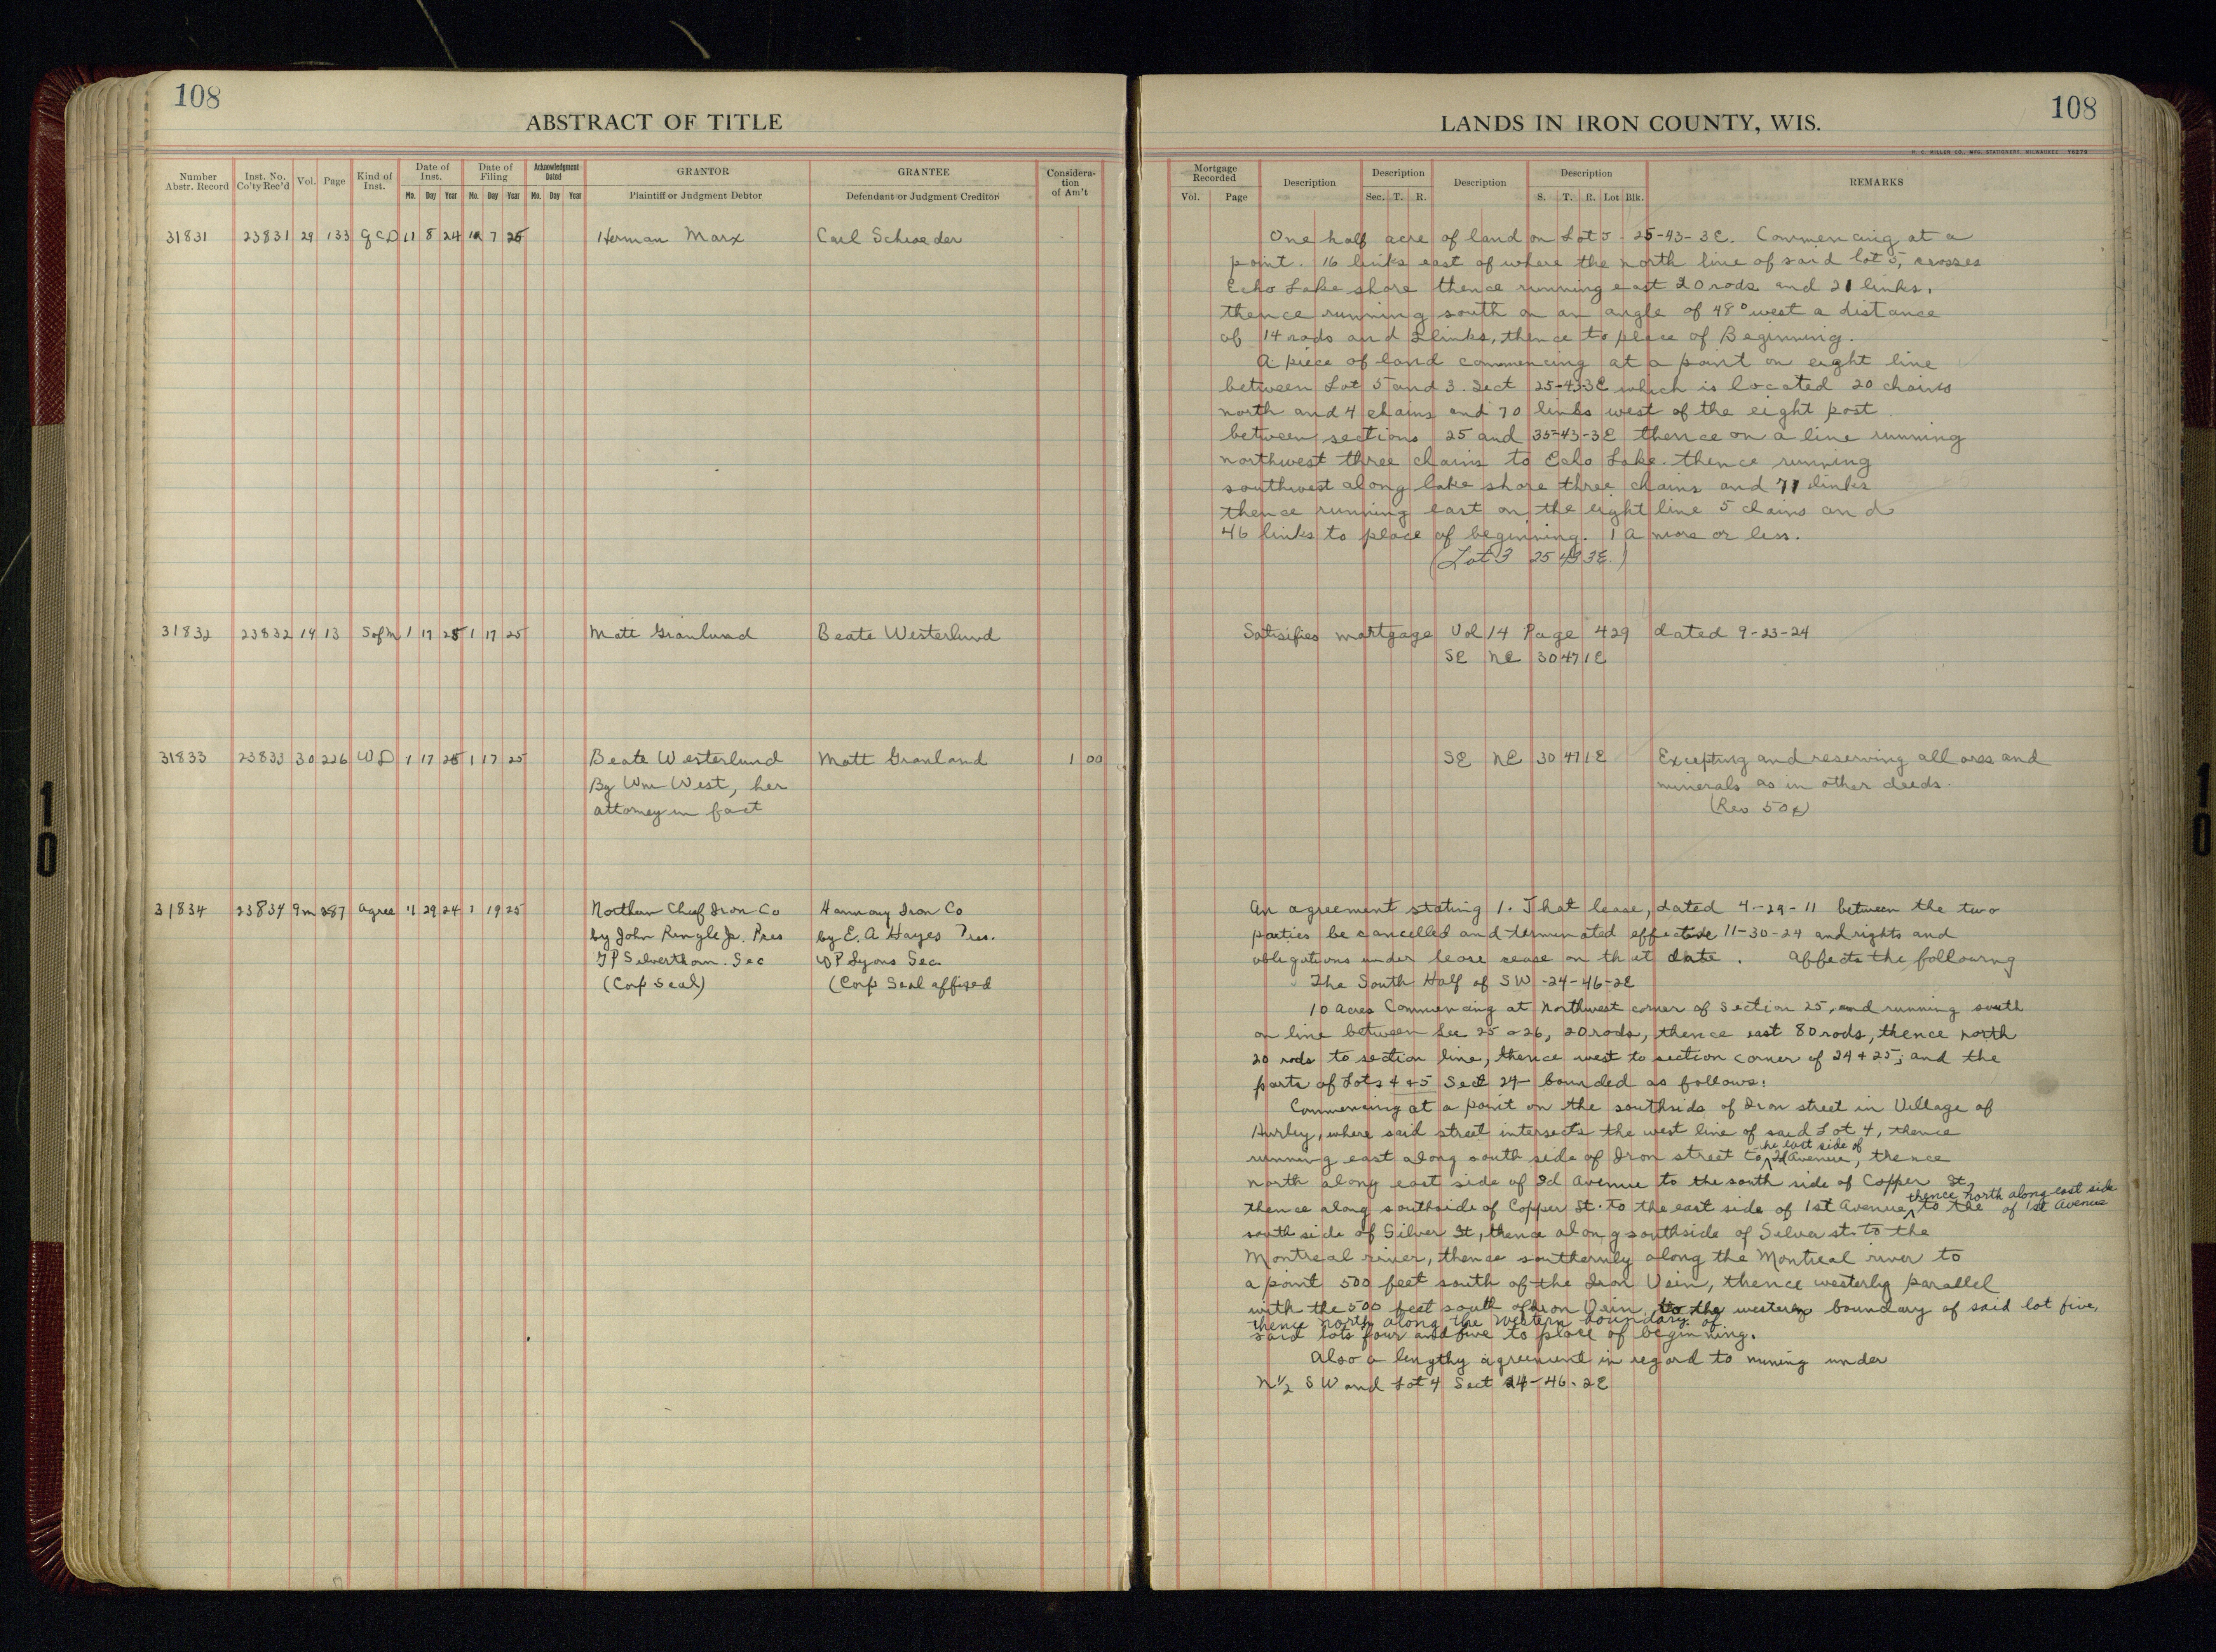 108
ABSTRACT OF TITLE
Number Abstr. Record
Inst. No. Co'ty Rec'd
Vol.
Page
Kind of Inst.
Date of Inst.
Mo. Day Year
Date of Filing
Mo. Day Year
Acknowledgment Dated
Mo. Day Year
GRANTOR
Plaintiff or Judgment Debtor
GRANTEE
Defendant or Judgment Creditor
Considera-
tion
of Am't
31831 23831 29 133 QCD 11 8 24 7 25 Herman Marx Carl Schroeder
31832 23832 14 13 S of M 1 17 25 1 17 25 Matt Granlund Beate Westerlund
31833 23833 30 226 WD 1 17 25 1 17 25 Beate Westerlund Matt Granland 1 00
By Wm West, her
attorney in fact
31834 23834 9m 287 Agree 11 29 24 1 19 25 Northern Chief Iron Co Harmony Iron Co
by John Ringle Jr. Pres by E. A Hayes Tres.
T P Silverthorn. Sec W P Lyons Sec.
(Corp Seal) (Corp Seal affixed
LANDS IN IRON COUNTY, WIS.
108
Mortgage Recorded
Vol. Page
Description
Description
Sec. T. R.
Description
Description
S. T. R. Lot Blk.
REMARKS
One half acre of land on Lot 5 - 25-43-3E. Commencing at a
point. 16 links east of where the north line of said lot 5, crosses
Echo Lake shore thence running east 20 rods and 21 links,
thence running south on an angle of 48° west a distance
of 14 rods and 2 links, thence to place of Beginning.
A piece of land commencing at a point on eight line
between Lot 5 and 3. Sect 25-43-3E which is located 20 chains
north and 4 chains and 70 links west of the eight post
between sections 25 and 35-43-3E thence on a line running
northwest three chains to Echo Lake. thence running
southwest along lake shore three chains and 71 links
thence running east on the eight line 5 chains and
46 links to place of beginning. 1 A more or less.
(Lot 3 25 43 3E.)
Satisifies mortgage Vol 14 Page 429 dated 9-23-24
SE NE 30 47 1E
SE NE 30 47 1E Excepting and reserving all ores and
minerals as in other deeds.
(Rev 50¢)
An agreement stating 1. That lease, dated 4-29-11 between the two
parties be cancelled and terminated effective 11-30-24 and rights and
obligations under lease cease on that date. Affects the following
The South Half of SW -24-46-2E
10 acres Commencing at Northwest corner of Section 25, and running south
on line between Sec 25 & 26, 20 rods, thence east 80 rods, thence north
20 rods to section line, thence west to section corner of 24 & 25; and the
parts of Lots 4 & 5 Sect 24 bounded as follows:
Commencing at a point on the southside of Iron street in Village of
Hurley, where said street intersects the west line of said Lot 4, thence
he east side of
running east along south side of Iron street to 2d Avenue, thence
north along east side of 2d Avenue to the south side of Copper St,
thence north along east side
thence along southside of Copper St. to the east side of 1st Avenue, to the of 1st Avenue
south side of Silver St, thence along southside of Silver st. to the
Montreal river, thence southernly along the Montreal river to
a point 500 feet south of the Iron Vein, thence westerly parallel
with the 500 feet south of Iron Vein, to the western boundary of said lot five,
thence north along the western boundary of
said lots four and five to place of beginning.
Also a lengthy agreement in regard to mining under
N½ SW and Lot 4 Sect 24-46-2E